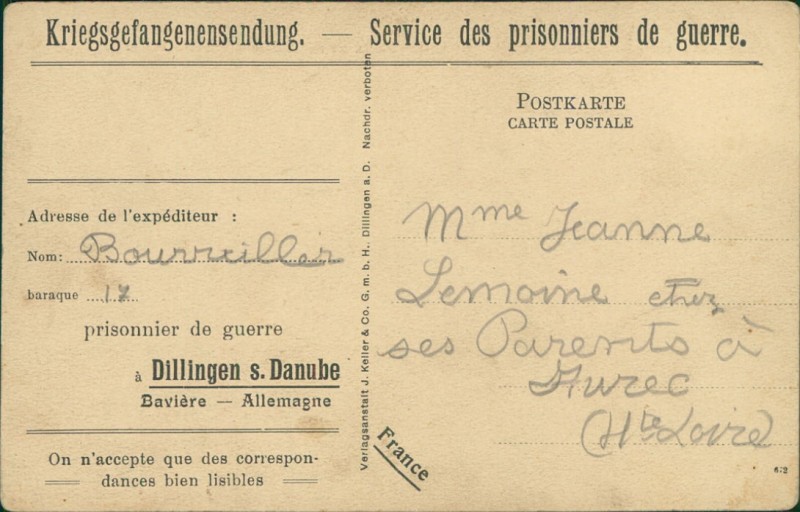 Kriegsgefangenensendung. — Service des prisonniers de guerre.
POSTKARTE
CARTE POSTALE
Adresse de l'expéditeur :
Nom:
baraque 17
prisonnier de guerre
à Dillingen s. Danube
Bavière — Allemagne
On n'accepte que des correspon-
dances bien lisibles
Verlagsanstalt J. Keller & Co. G. m. b. H., Dillingen a. D. Nachdr. verboten
Mme Jeanne
Lemoine chez
ses Parents à
Aurec
(Hte Loire)
France